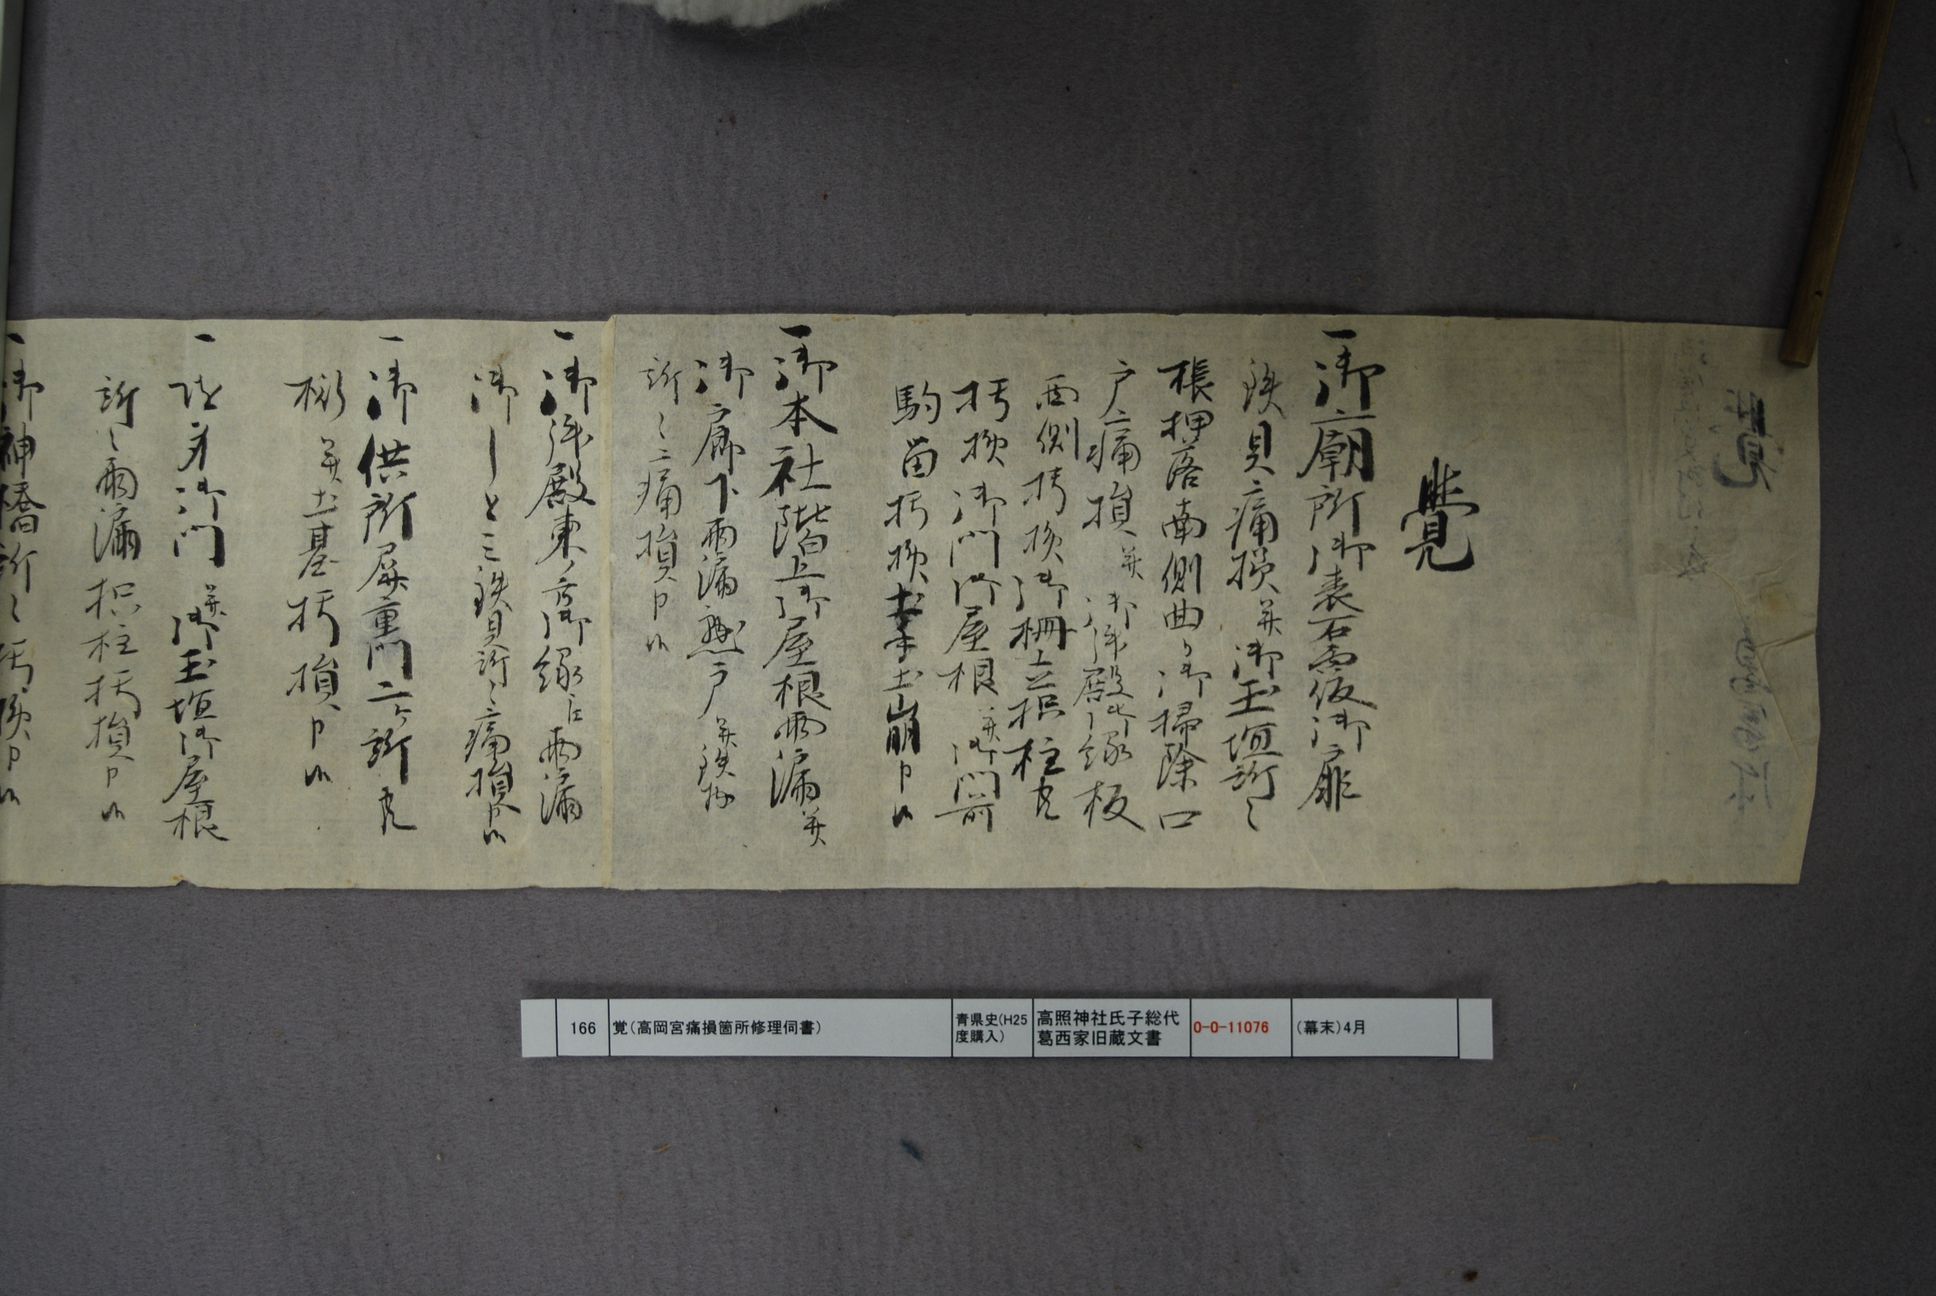 覺
一御廟所御表石雪板御扉
鉄具痛損并御玉垣所々
張押落南側曲り御掃除口
戸痛損并御拝殿御縁板
西側朽損御柵立杭柱朽
朽損御門御屋根并御門前
駒留朽損土崩申候
一御本社階上御屋根雨漏并
御廊下雨漏 戸并鉄物
所々痛損申候
一御拝殿東ノ方御縁 雨漏
御しとミ鉄具所々痛損申候
一御供所屏重門二ヶ所
并土基朽損申候
一随身御門并御玉垣御屋根
所々雨漏杭柱朽損申候
一御神橋所々朽損申候
166
覚(高岡宮痛損箇所修理伺書)
青県史(H25
度購入)
高照神社氏子総代
葛西家旧蔵文書
0-0-11076
(幕末)4月